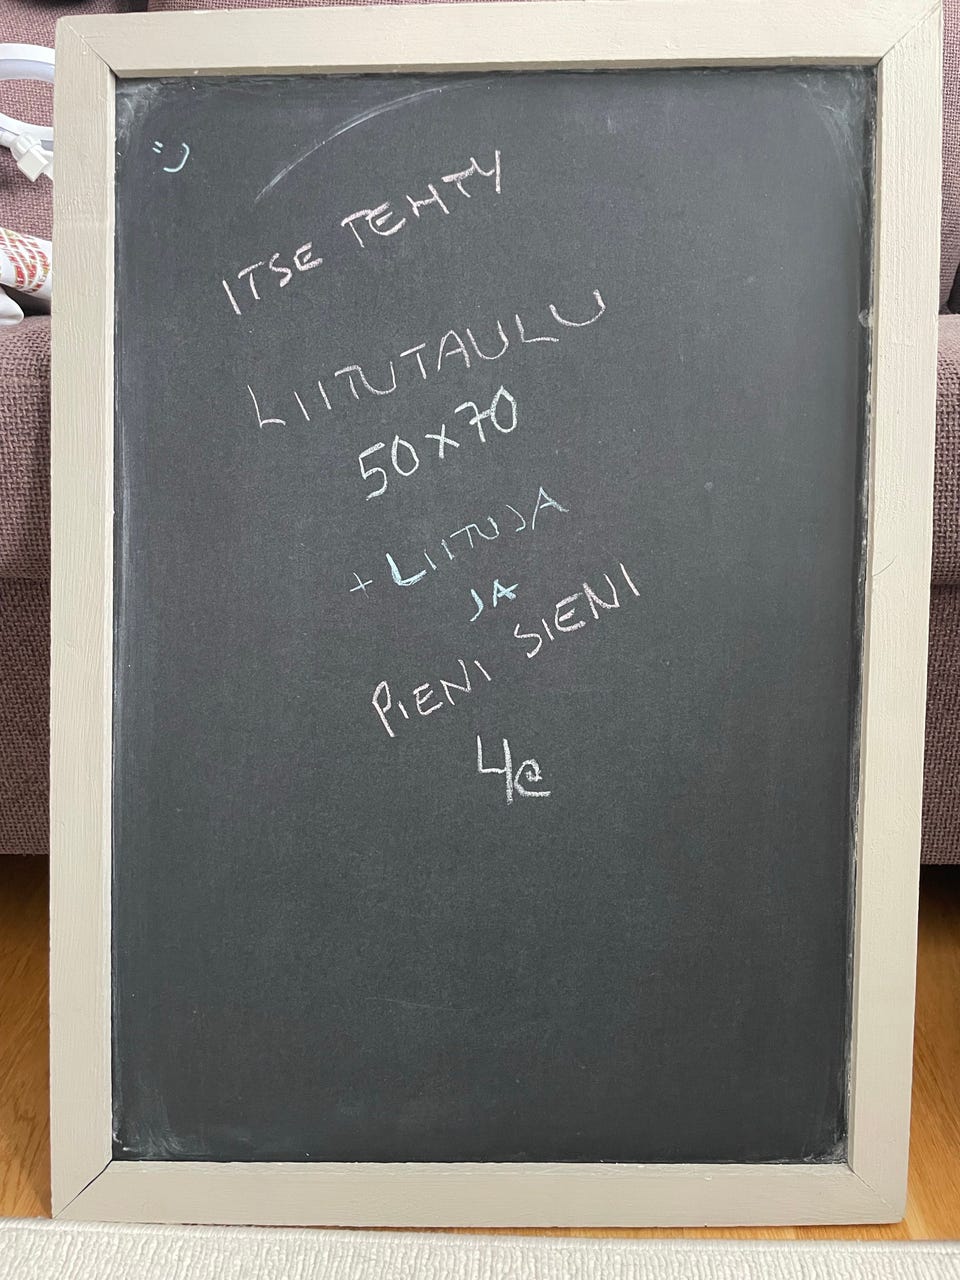 ITSE TEHTY
LIITUTAULU
50x70
+ LIITUJA
JA
PIENI SIENI
4e